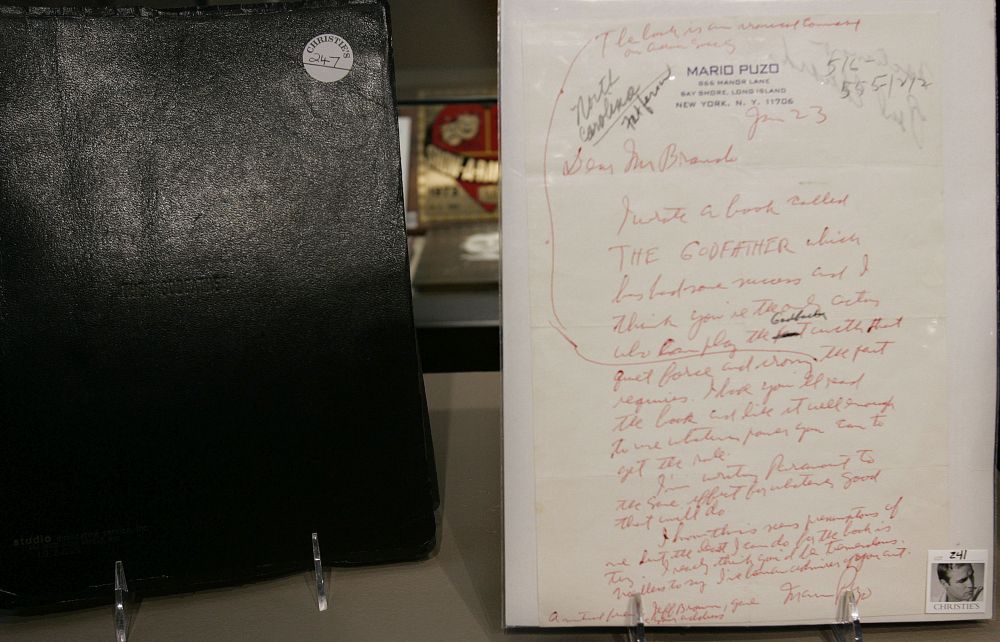 CHRISTIE'S
247
studio
The book is an ironical comment
on American Society
North
Carolina
MARIO PUZO
866 MANOR LANE
BAY SHORE, LONG ISLAND
NEW YORK, N. Y. 11706
516-
555-1212
Jan 23
Dear Mr Brando
I wrote a book called
THE GODFATHER which
has had some success and I
think you're the only actor
Godfather
who can play the part with that
quiet force and irony the part
requires. I hope you'll read
the book and like it well enough
to use whatever power you can to
get the role.
I'm writing Paramount to
the same effect for whatever good
that will do.
I know this was presumptuous of
me but the best I can do for the book is
try. I really think you'd be tremendous.
Needless to say I've been an admirer of your art.
Mario Puzo
A mutual friend, Jeff Brown, gave
me your address
241
CHRISTIE'S